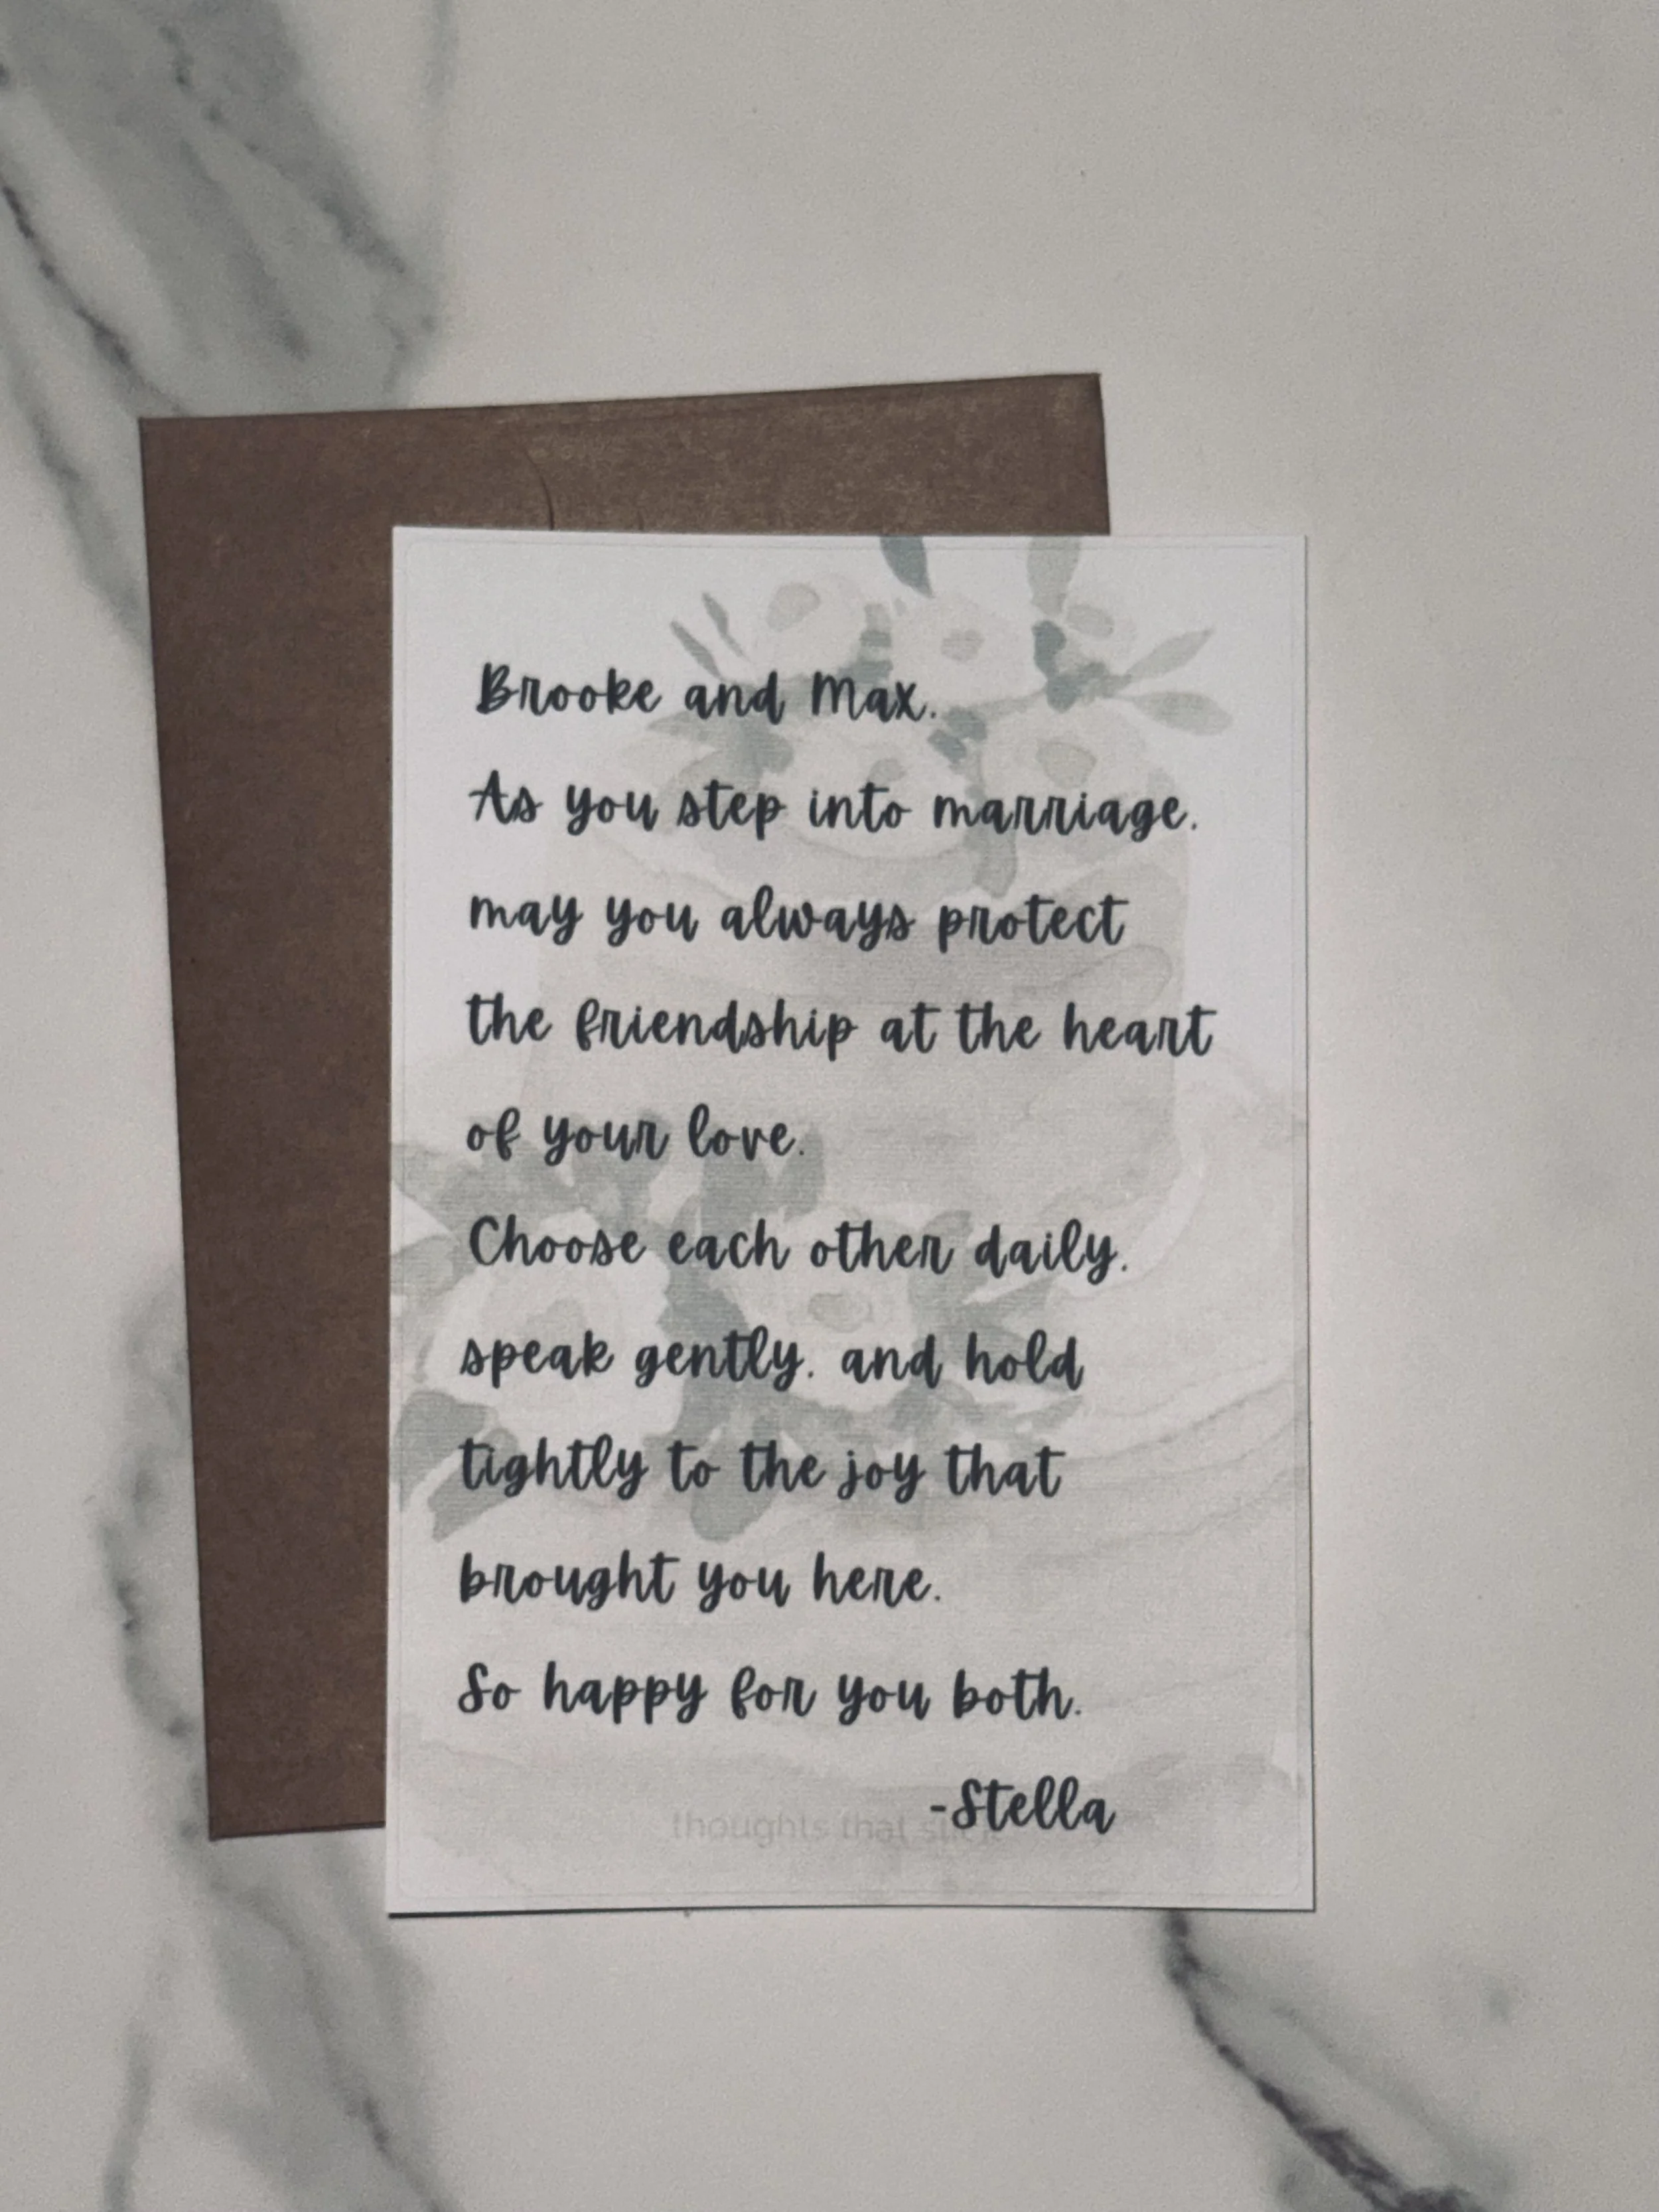 Brooke and Max.
As you step into marriage.
may you always protect
the friendship at the heart
of your love.
Choose each other daily.
speak gently. and hold
tightly to the joy that
brought you here.
So happy for you both.
-Stella
thoughts that